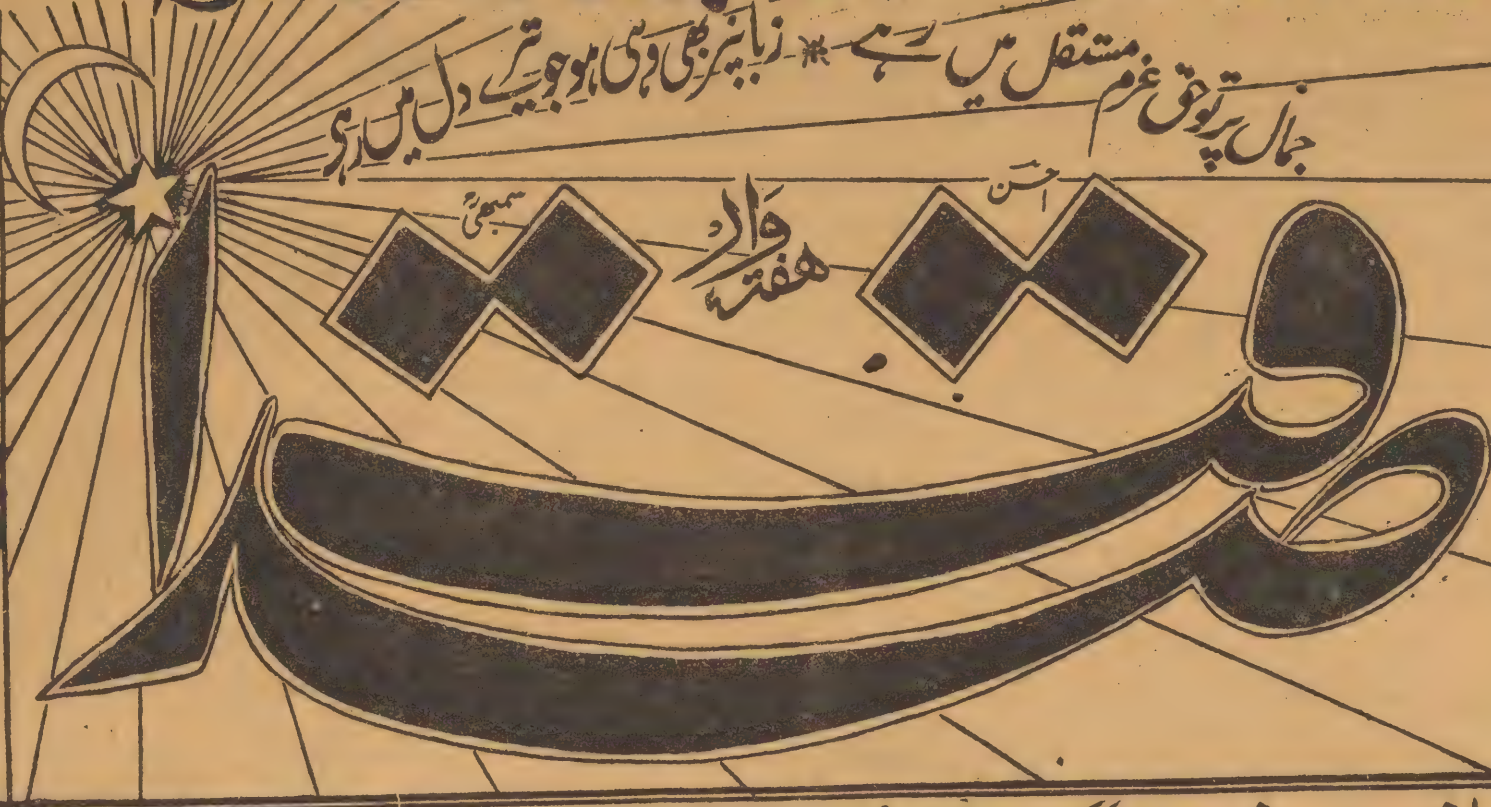 جمال پرتو حق عزم مستقل میں رہے * زبانپر بھی وہی ہو جو تیرے دل میں رہے
احسن
ہفتہ وار
صداقت